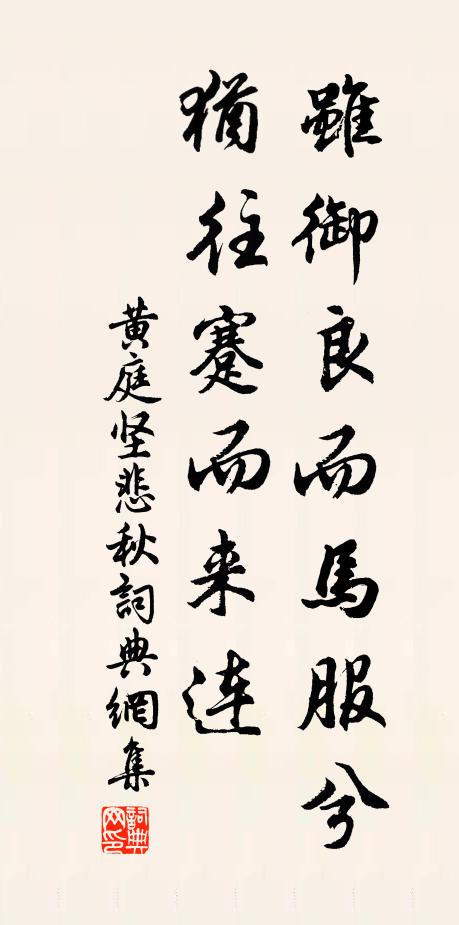 雖御良而馬服兮
猶往蹇而来连
黄庭坚悲秋詞典網集
詞典網印